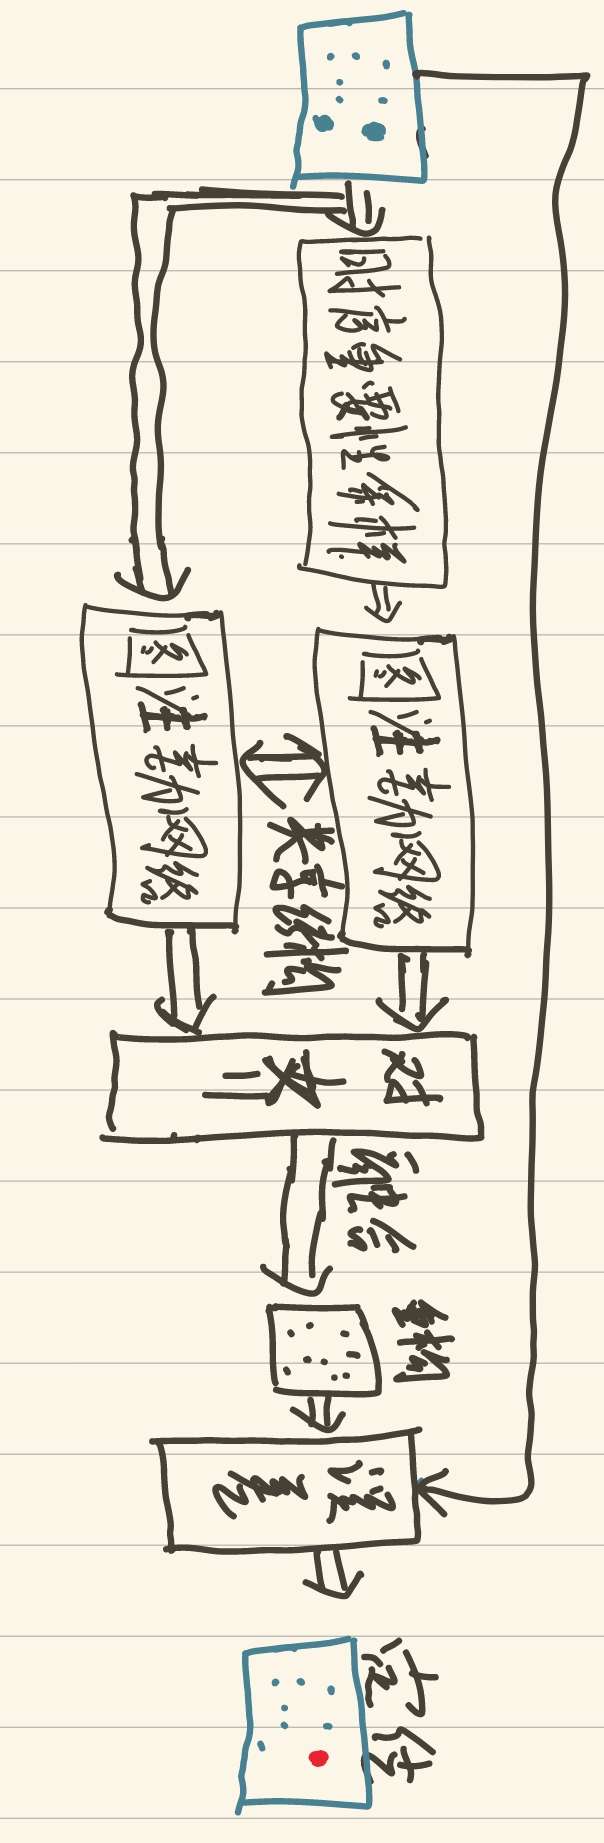 时序重要性采样
图注意力网络
共享结构
图注意力网络
对齐
融合
重构
误差
定位